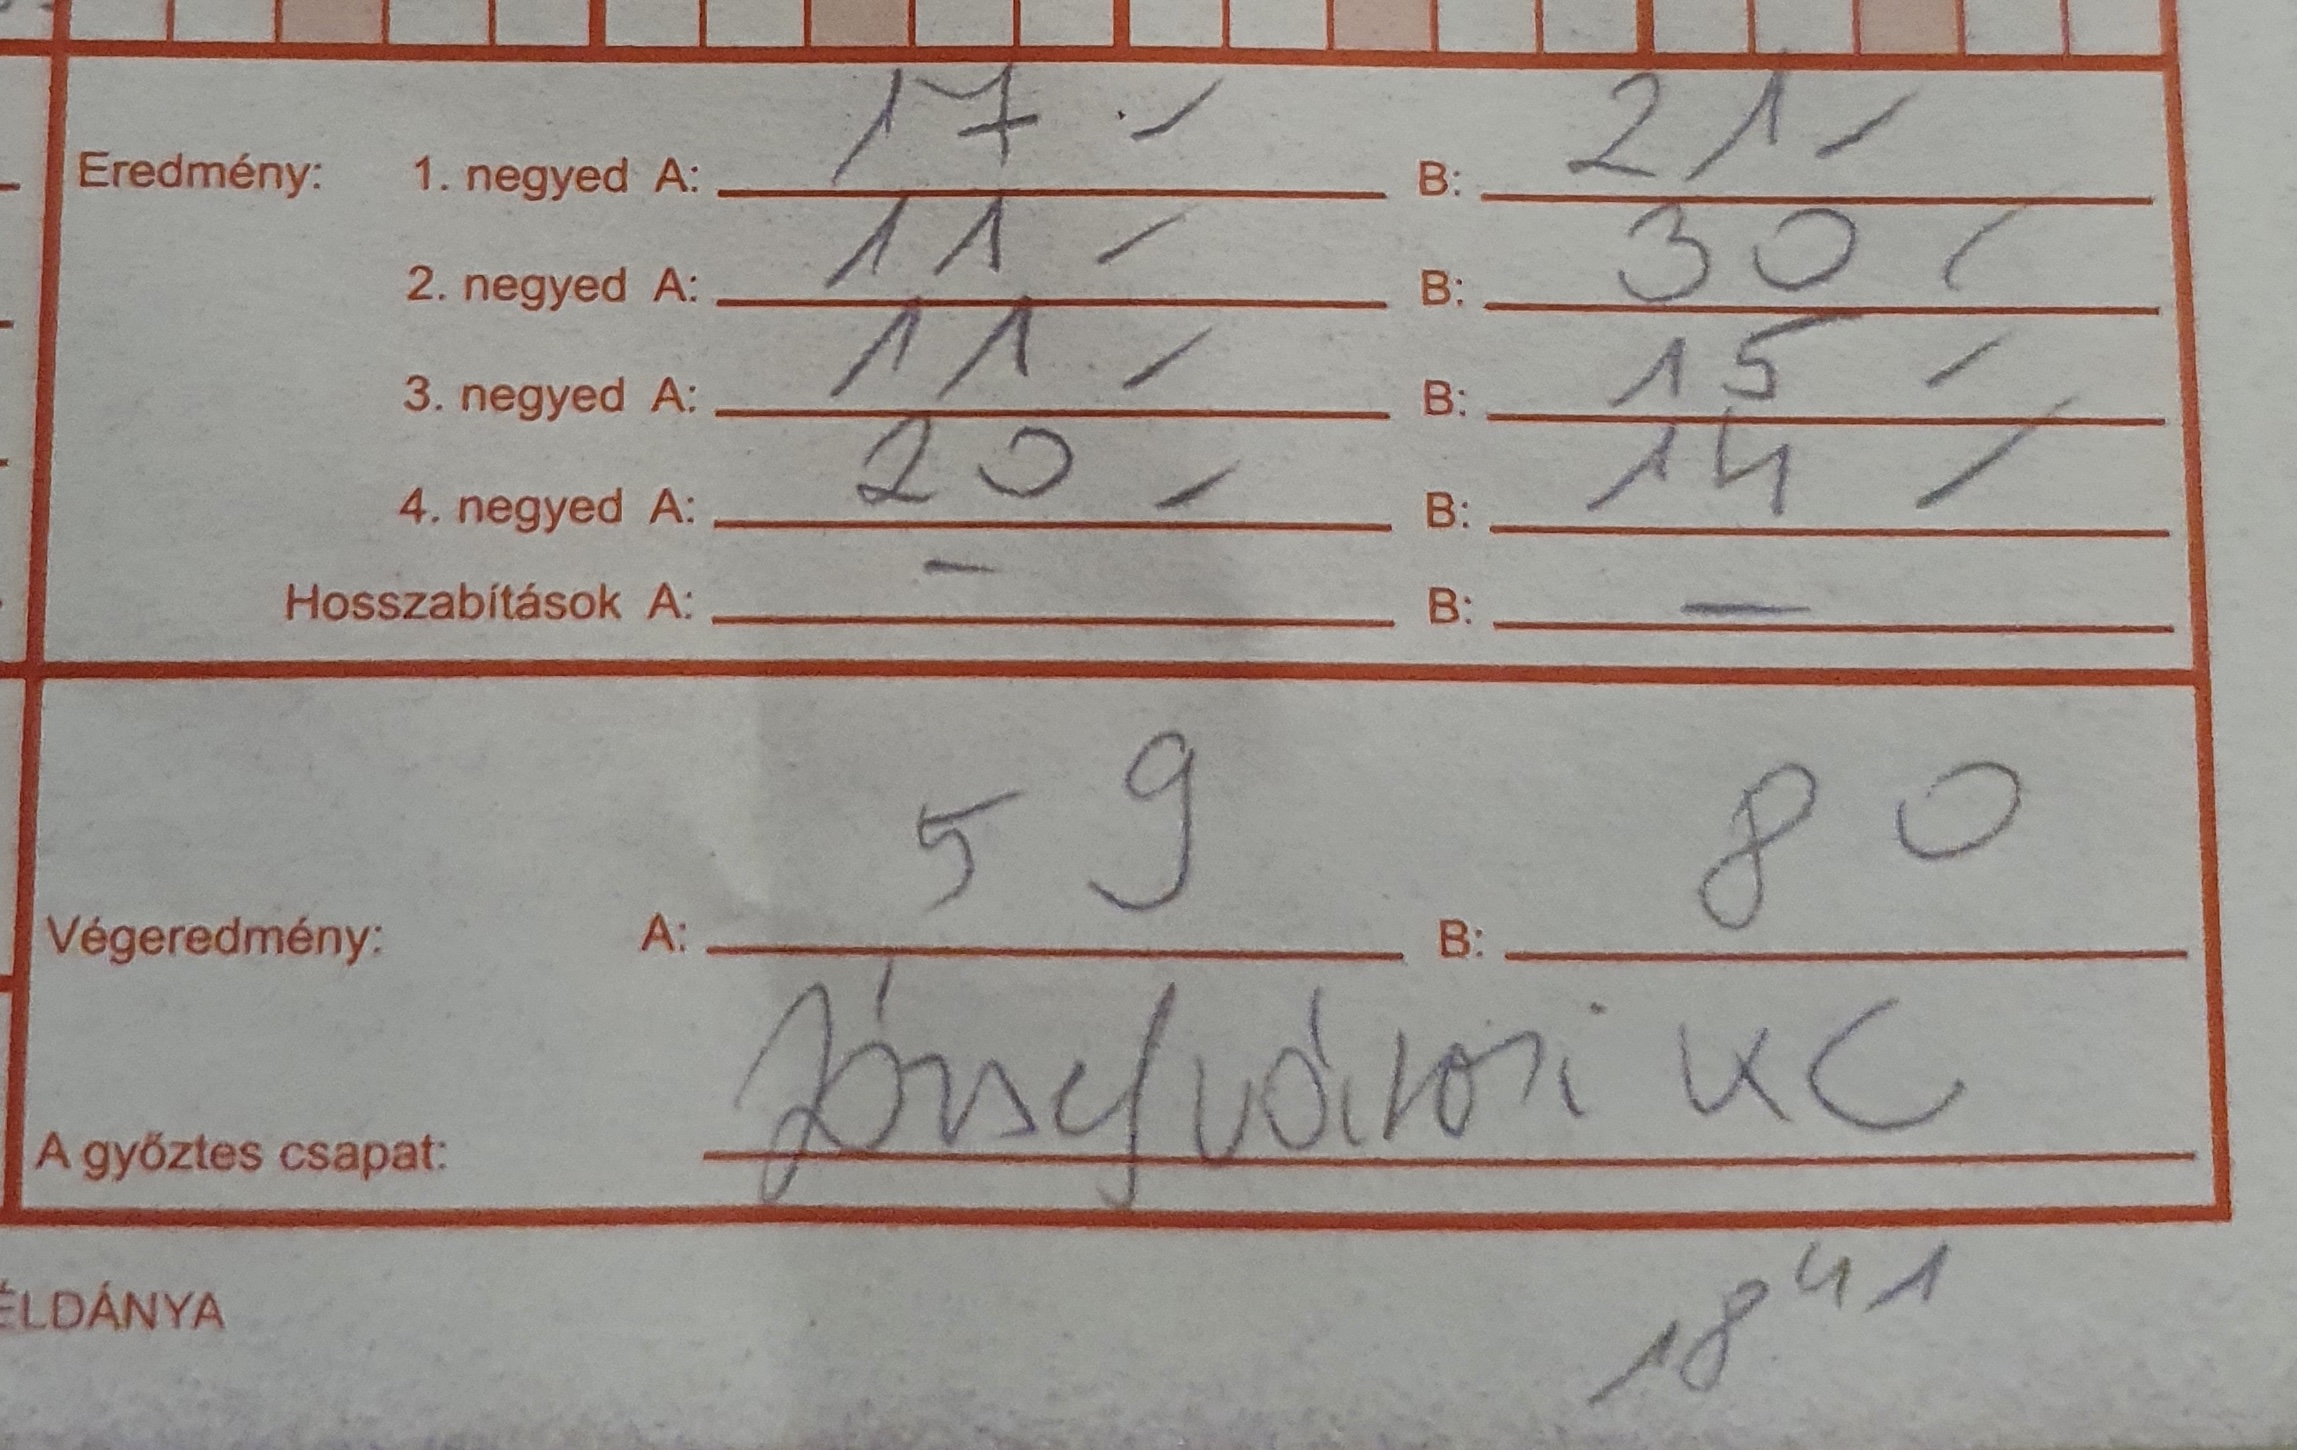 Eredmény: 1. negyed A: 17 - B: 21 -
2. negyed A: 11 - B: 30 -
3. negyed A: 11 - B: 15 -
4. negyed A: 20 - B: 14 -
Hosszabítások A: - B: -
Végeredmény: A: 59 B: 80
A győztes csapat: Józsefvárosi KC
ÉLDÁNYA
18 41